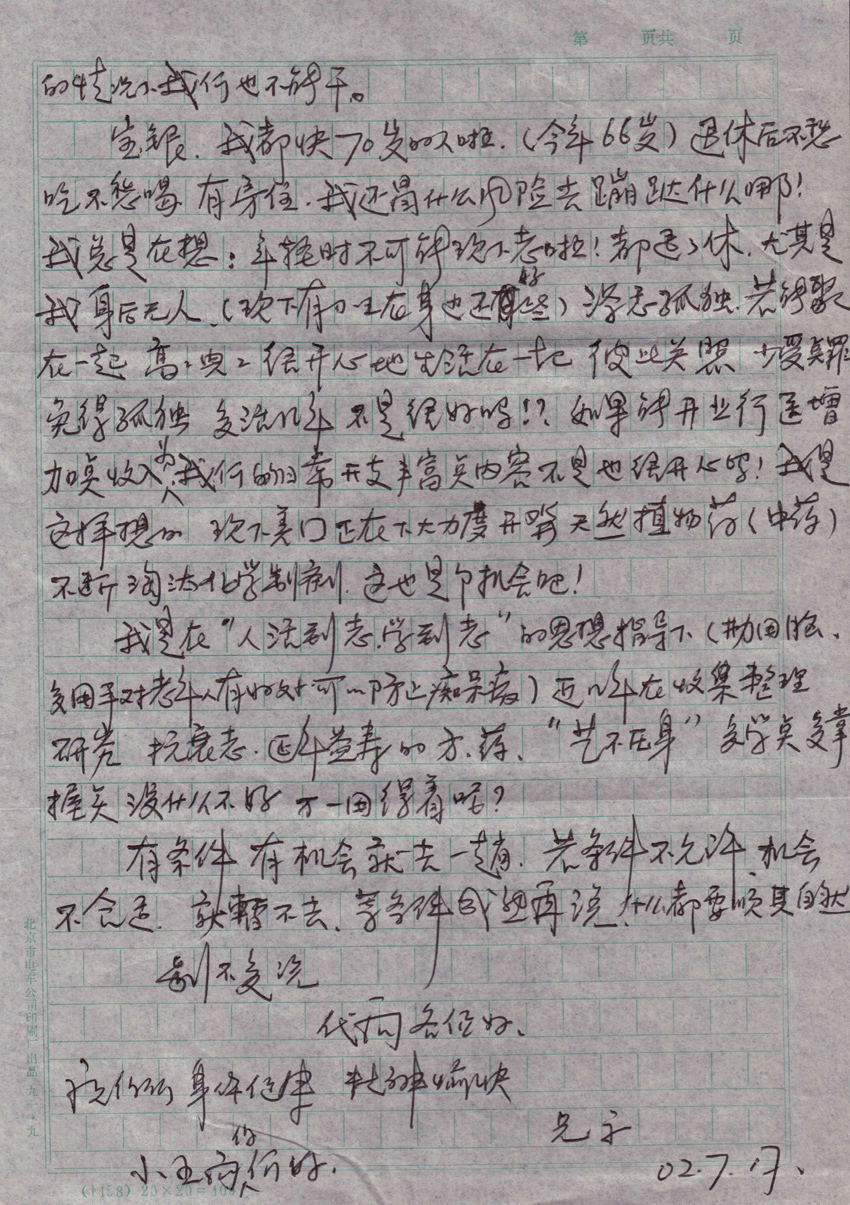 第 页共 页
的情况下我们也不能干。
宝银、我都快70岁的人啦.(今年66岁)退休后不愁
吃不愁喝 有房住.我还冒什么风险去蹦跶什么哪!
我总是在想:年轻时不可能现下老啦!都退了休.尤其是
我身后无人.(现下有卫生在身也还好些)深恐孤独.若能聚
在一起 高高兴兴很开心地生活在一起 彼此关照 少受点罪
免得孤独 多活几年 不是很好吗!?如果能开业行医增
加点收入为我们的日常开支丰富点内容不是也很开心吗!我是
这样想的 现下美门正在下大力度开发天然植物药(中药)
不断淘汰化学制剂.这也是个机会吧!
我是在“人活到老.学到老”的思想指导下(勤用脑、
多用手对老年人有好处可以防止痴呆病)近几年在收集整理
研究 抗衰老.延年益寿的方.药、“艺不压身”多学点多掌
握点没什么不好 万一用得着呢?
有条件 有机会就去一趟.若条件不允许.机会
不合适.就暂不去、等条件成熟再说.什么都要顺其自然
别不多说
代问各位好、
祝你们 身体健康 精神愉快
兄字
小王病你们好.
02.7.17、
北京市电车公司印刷厂出品 九 · 九
(1458) 20×20=400